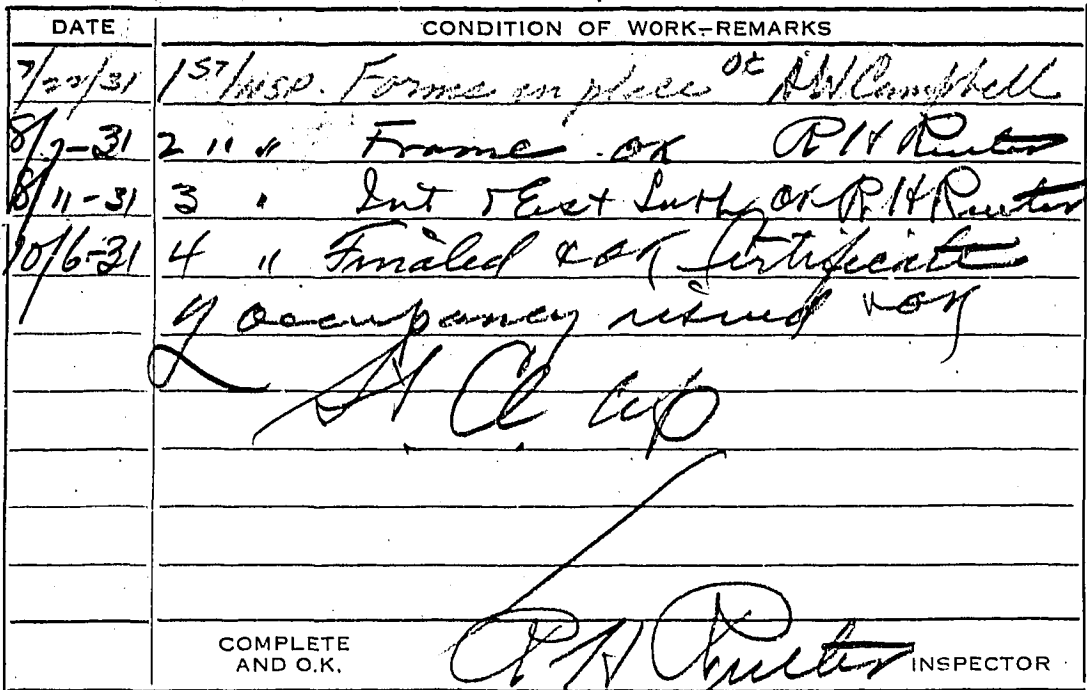 DATE CONDITION OF WORK-REMARKS
7/22/31 1ST/INSP. Forms in place OK AW Campbell
8/7-31 2 " " Frame OK R H Reuter
8/11-31 3 " Int & Ext Lath OK R H Reuter
10/6-31 4 " Finaled & OK Certificate
of occupancy issued & OK
COMPLETE AND O.K. R H Reuter INSPECTOR